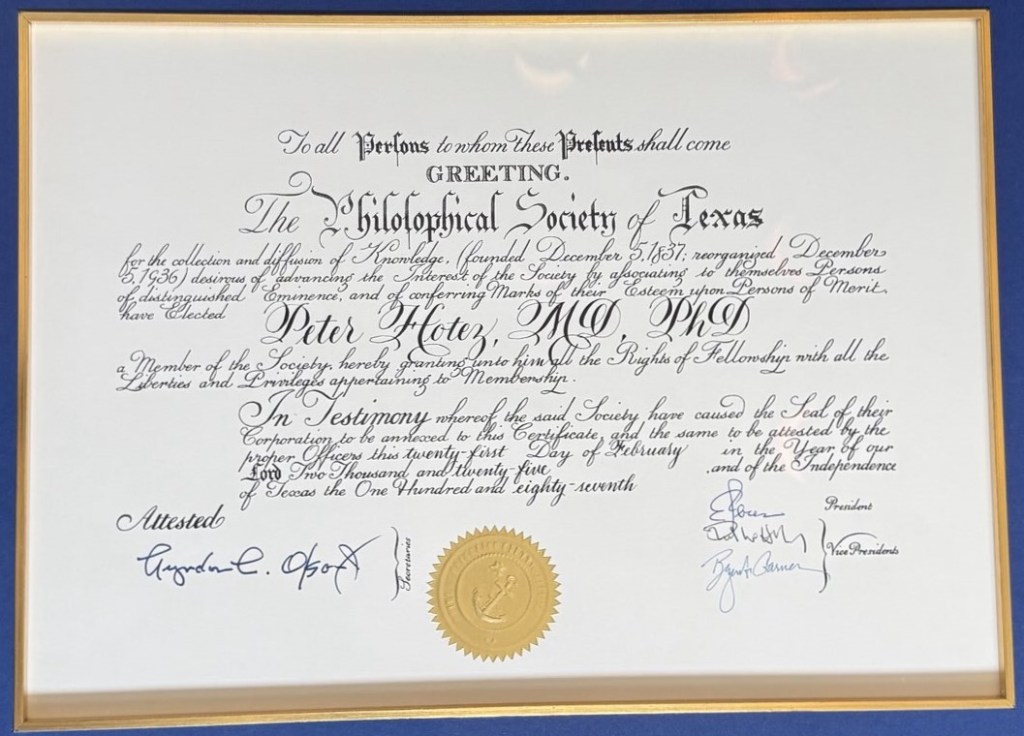 To all Perſons to whom these Preſents shall come
GREETING.
The Philoſophical Society of Texas
for the collection and diffusion of Knowledge, (founded December 5, 1837; reorganized December
5, 1936) desirous of advancing the Interest of the Society by aſsociating to themselves Persons
of distinguished Eminence, and of conferring Marks of their Esteem upon Persons of Merit,
have Elected
Peter Hotez, MD, PhD
a Member of the Society, hereby granting unto him all the Rights of Fellowship with all the
Liberties and Privileges appertaining to Membership.
In Testimony whereof, the said Society have caused the Seal of their
Corporation to be annexed to this Certificate, and the same to be attested by the
proper Officers this twenty-first Day of February in the Year of our
Lord Two Thousand and twenty-five and of the Independence
of Texas the One Hundred and eighty-seventh
Attested
Secretaries
President
Vice Presidents